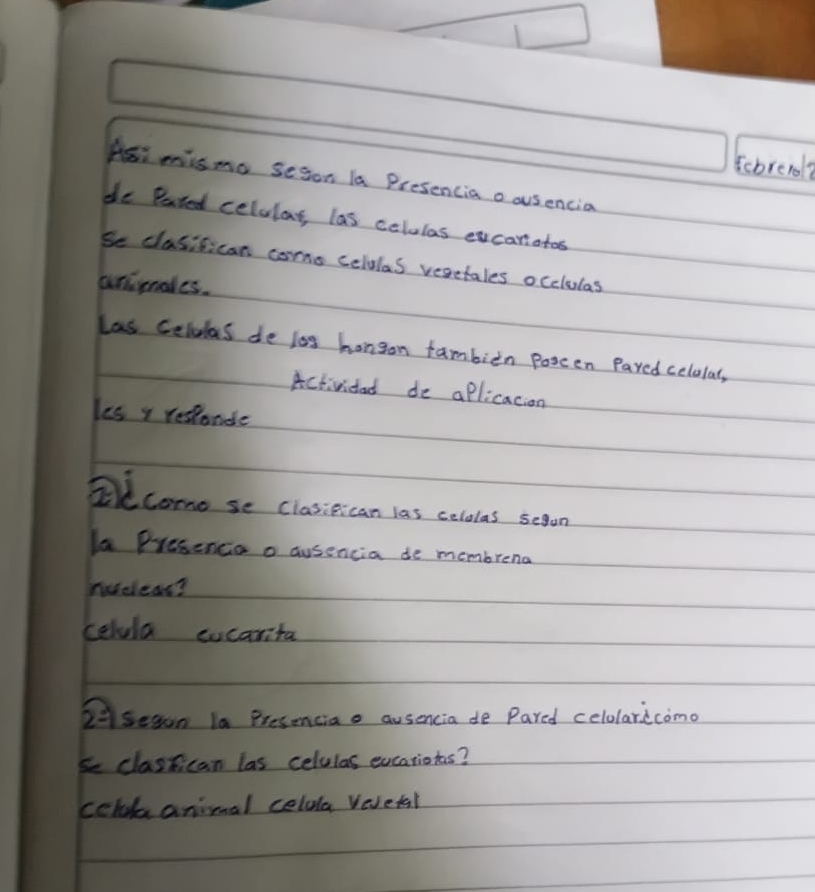 Febrero/2
Asi mismo segon la Presencia o ausencia
de Pared celular, las celulas eucariotos
se clasifican como celulas vegetales o celulas
animales.
Las celulas de los hongon tambien poseen Pared celular,
Actividad de aplicacion
les y responde
1= ¿como se clasifican las celolas segun
la Presencia o ausencia de membrena
nuclear?
celula eucarita
2= Segun la Presencia o ausencia de Pared celular ¿como
se clasifican las celulas eucariotas?
celula animal celula vejetal